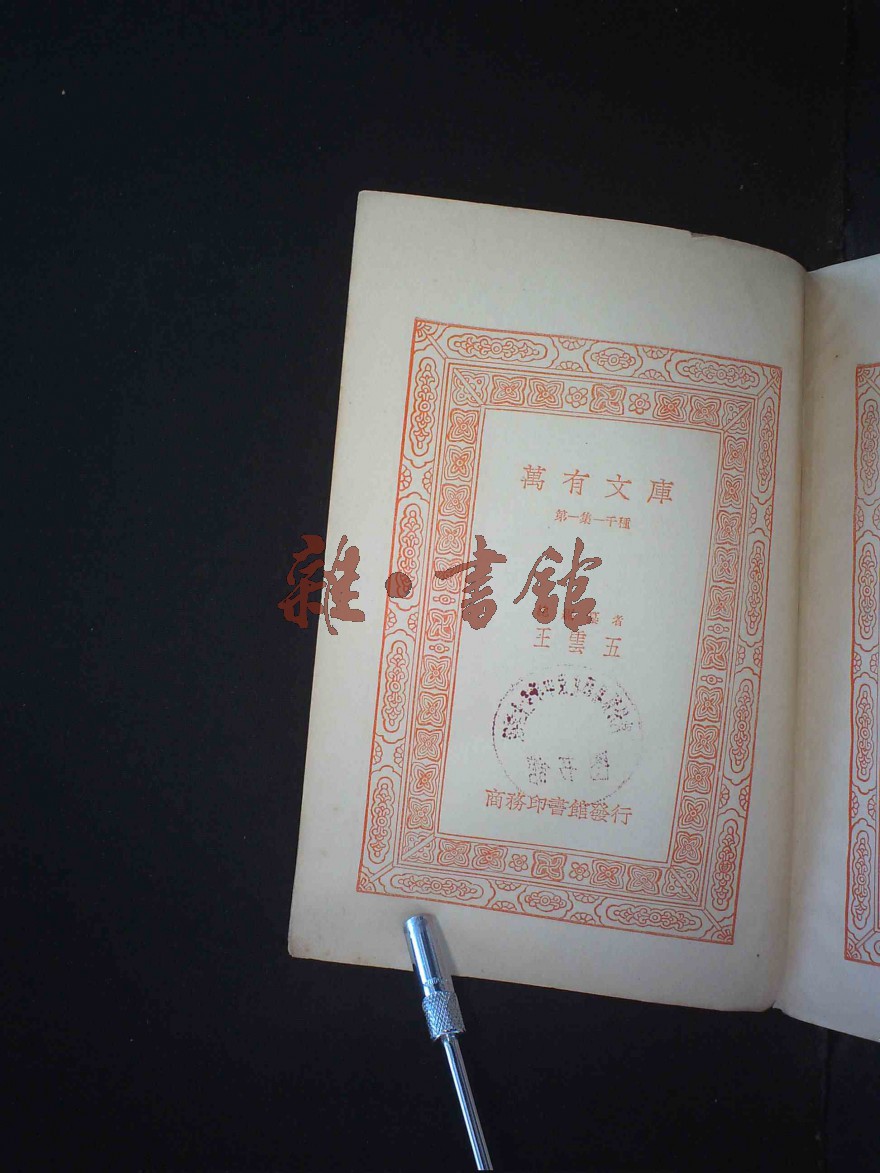 萬有文庫
第一集一千種
雜·書館
者
王雲五
商務印書館發行